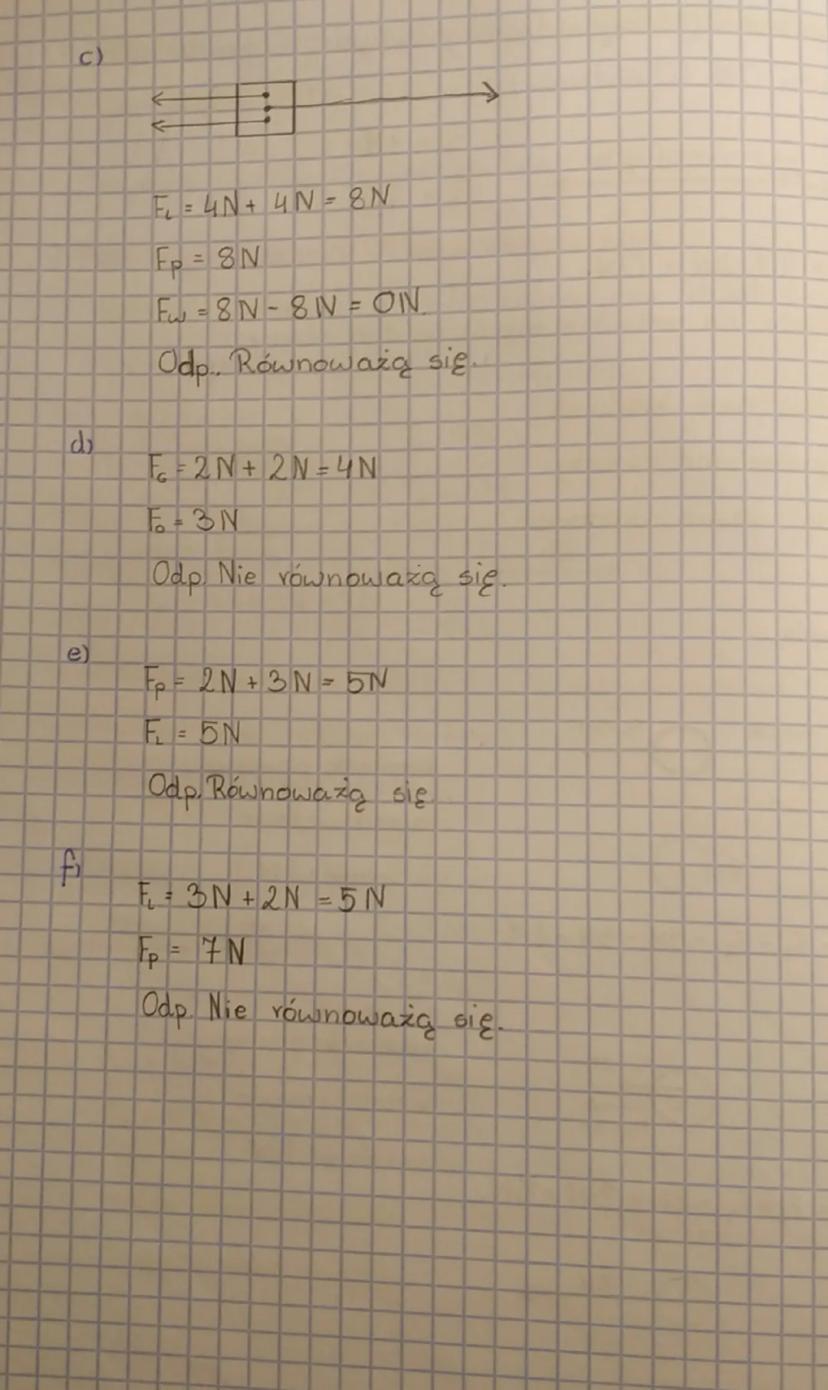 c)
F_L = 4N + 4N = 8N
F_p = 8N
F_w = 8N - 8N = 0N
Odp.. Równoważą się.
d)
F_G = 2N + 2N = 4N
F_o = 3N
Odp. Nie równoważą się.
e)
F_p = 2N + 3N = 5N
F_L = 5N
Odp. Równoważą się
f)
F_L = 3N + 2N = 5N
F_p = 7N
Odp. Nie równoważą się.